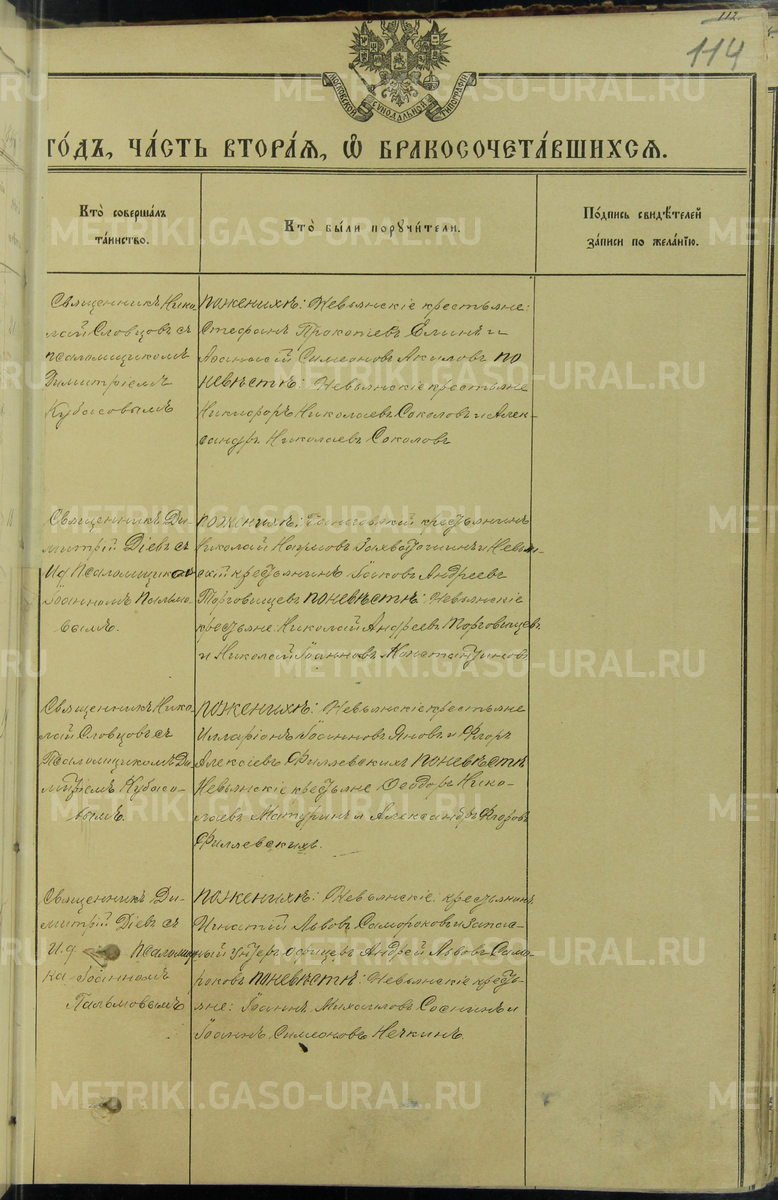 112.
114
МОСКОВСКОЙ СѴНОДАЛЬНОЙ ТИПОГРАФІИ
ГО́ДЪ, ЧА́СТЬ ВТОРА́Я, Ѡ҆ БРАКОСОЧЕТА́ВШИХСЯ.
Кто̀ соверша́лъ
та́инство.
Кто̀ бы́ли поручи́тели.
По́дпись свидѣ́телей
за́писи по жела́нїю.
Священникъ Нико
лай Словцовъ съ
псаломщикомъ
Димитріемъ
Кубасовымъ
По женихѣ: Невьянскіе крестьяне:
Стефанъ Прокопіевъ Елинъ и
Аѳанасій Симеоновъ Акиловъ по
невѣстѣ: Невьянскіе крестьяне
Никифоръ Николаевъ Соколовъ и Алек-
сандръ Николаевъ Соколовъ
Священникъ Ди-
митрій Діевъ съ
И д Псаломщика
Іоанномъ Пальмо-
вымъ.
По женихѣ: крестьянинъ
Николай Наумовъ и Невьян-
скій крестьянинъ Іаковъ Андреевъ
Торговищевъ по невѣстѣ: Невьянскіе
крестьяне Николай Андреевъ Торговищевъ
и Николай Іоанновъ Константиновъ
Священникъ Нико-
лай Словцовъ съ
Псаломщикомъ Ди-
митріемъ Кубасо-
вымъ.
По женихѣ: Невьянскіе крестьяне
Илларіонъ Іоанновъ Яновъ и Егоръ
Алексіевъ Филлевскихъ По невѣстѣ
Невьянскіе крестьяне Ѳеодоръ Нико-
лаевъ Матуринъ и Александръ Егоровъ
Филлевскихъ.
Священникъ Ди-
митрій Діевъ съ
И д Псаломщи
ка Іоанномъ
Пальмовымъ
По женихѣ: Невьянскіе: крестьянинъ
Игнатій Львовъ Самороковъ и запас-
ный унтеръ офицеръ Андрей Львовъ Само-
роковъ По невѣстѣ: Невьянскіе кресть-
яне: Іоаннъ Михаиловъ Соснинъ и
Іоаннъ Симеоновъ Нечкинъ.
METRIKI.GASO-URAL.RU